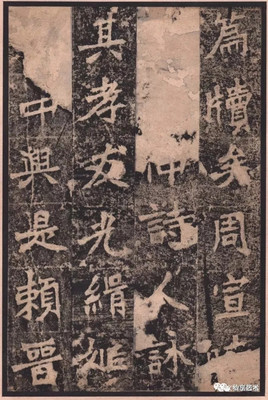 篇牘矣周宣
仲詩人詠
其孝友光緝姬
中興是賴晉